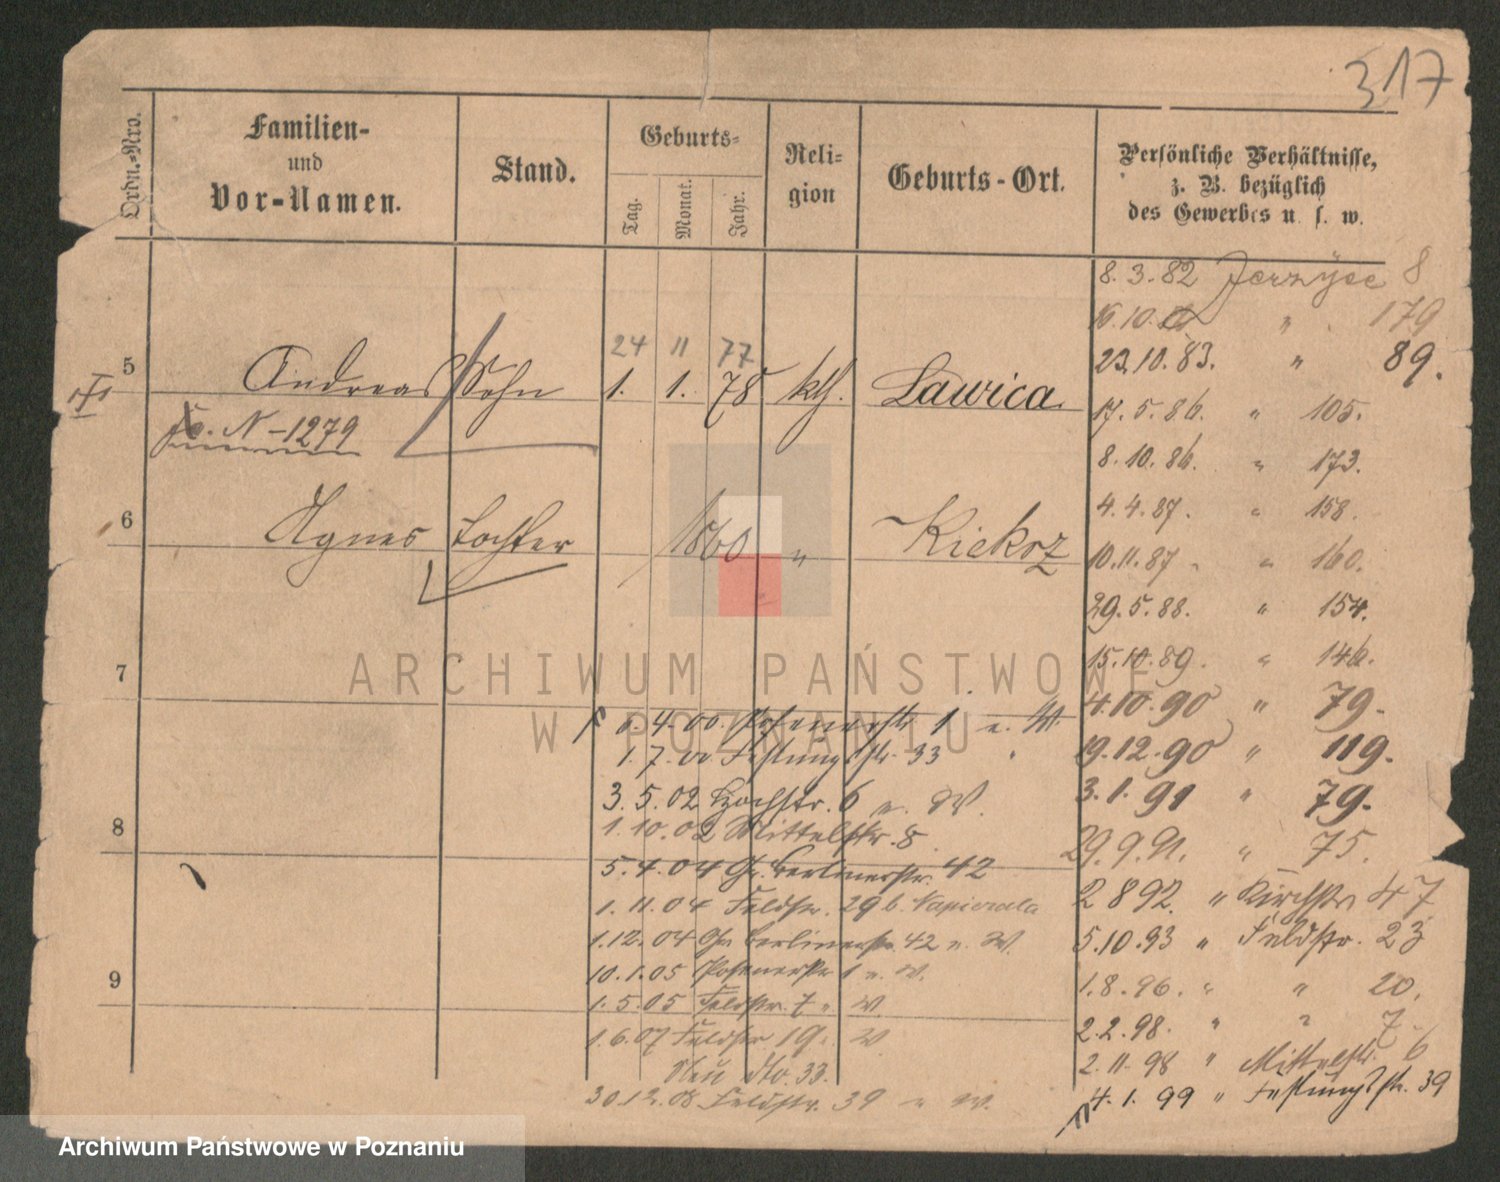 317
Ordn.=Nro.
Familien-
und
Vor-Namen.
Stand.
Geburts=
Tag.
Monat.
Jahr.
Reli-
gion
Geburts-Ort.
Persönliche Verhältnisse,
z. B. bezüglich
des Gewerbes u. s. w.
8. 3. 82 Jerzyce 8
16. 10. " 179
23. 10. 83. " 89.
17. 5. 86. " 105.
8. 10. 86. " 173.
4. 4. 87. " 158.
10. 11. 87 " 160.
29. 5. 88. " 154.
15. 10. 89. " 146.
4. 10. 90 " 79.
19. 12. 90 " 119.
3. 1. 91 " 79.
29. 9. 91. " 75.
2 8 92. " Kirchstr 47
5. 10. 93 " Feldstr. 23
1. 8. 96. " " 20.
2. 2. 98. " " 7
2. 11. 98 " Mittelstr. 6
4. 1. 99 " Festungsstr. 39
24 11 77
5 Andreas Sohn 1. 1. 78 kth. Lawica
N-1279
6 Agnes Tochter 1860 " Kiekrz
7
6. 4. 00. Posenerstr 1 u. W.
1. 7. 00 Festungsstr. 33
3. 5. 02 Hochstr. 6 u. W.
8
1. 10. 02 Mittelstr. 8
5. 4. 04 Gr. Berlinerstr. 42
1. 11. 04 Feldstr. 29 b. Napierala
1. 12. 04 Gr Berlinerstr. 42 u. W.
10. 1. 05 Posenerstr 1 u. W.
9
1. 5. 05 Feldstr. 7 " W.
1. 6. 07 Feldstr 19 " W
Neu dto. 33.
30. 12. 08 Feldstr. 39 u W.
ARCHIWUM PAŃSTWOWE
W POZNANIU
Archiwum Państwowe w Poznaniu